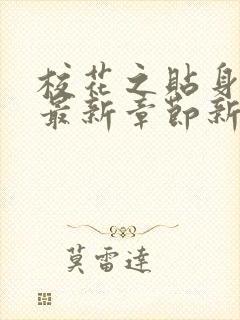 校花之貼身
最新章節新
莫雷達